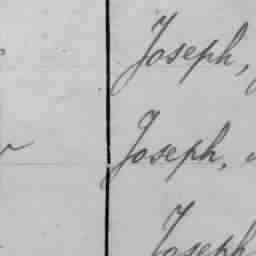 Joseph,
Joseph,
Joseph